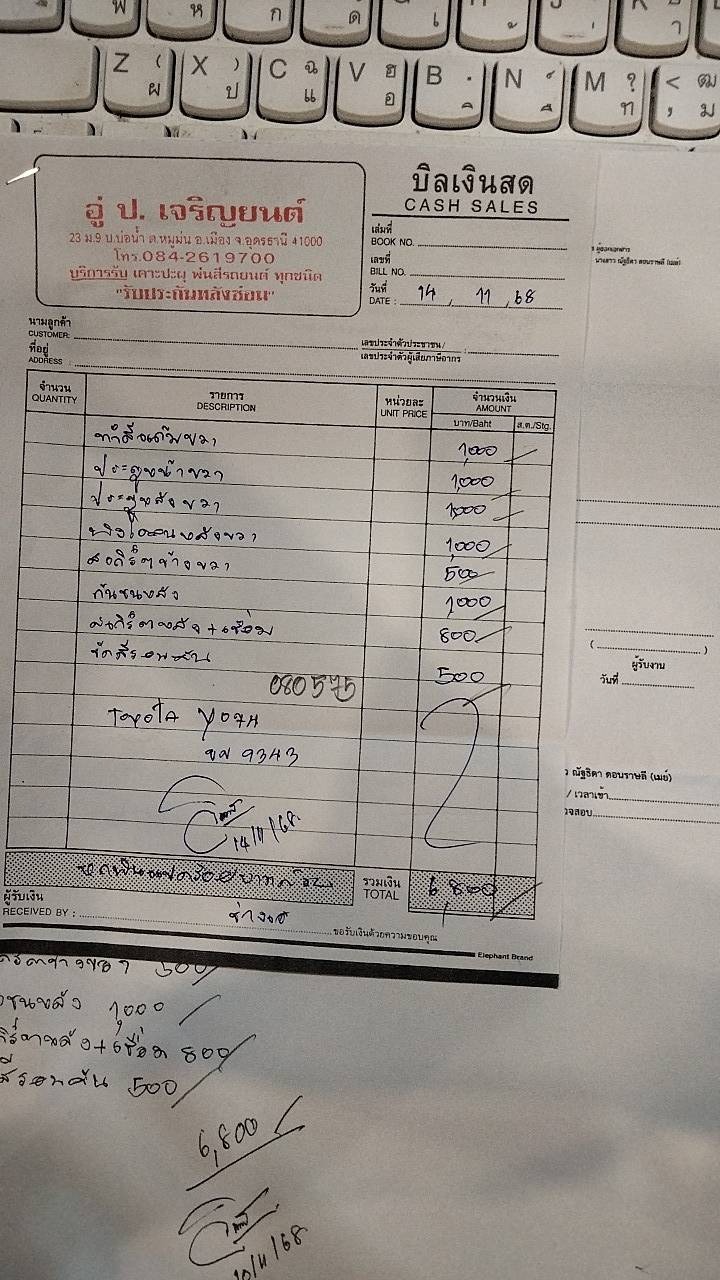 Z ( ผ
X ) ป
C ฉ แ
V ฮ อ
B ฺ ิ
N ์ ื
M ? ท
< ฒ , ม
อู่ ป. เจริญยนต์
23 ม.9 บ.บ่อน้ำ ต.หมูม่น อ.เมือง จ.อุดรธานี 41000
โทร.084-2619700
บริการรับ เคาะปะผุ พ่นสีรถยนต์ ทุกชนิด
"รับประกันหลังซ่อม"
บิลเงินสด
CASH SALES
เล่มที่
BOOK NO.
เลขที่
BILL NO.
วันที่
DATE : 14 , 11 , 68
นามลูกค้า
CUSTOMER:
เลขประจำตัวประชาชน/
เลขประจำตัวผู้เสียภาษีอากร
ที่อยู่
ADDRESS :
จำนวน QUANTITY
รายการ DESCRIPTION
หน่วยละ UNIT PRICE
จำนวนเงิน AMOUNT
บาท/Baht ส.ต./Stg.
1,000
ประตูหน้าขวา 1,000
ประตูหลังขวา 1,000
หลังขวา 1,000
สเกิร์ตข้างขวา 500
กันชนหลัง 1,000
สเกิร์ตหลัง+เชื่อม 800
ขัดสีรอบคัน 500
080575
Toyota
ขม 9343
14/11/68
รวมเงิน
TOTAL 6,800
ผู้รับเงิน
RECEIVED BY :
ขอรับเงินด้วยความขอบคุณ
Elephant Brand
ผู้ออกเอกสาร
นางสาว ณัฐธิดา ดอนราษลี (เมย์)
( )
ผู้รับงาน
วันที่
ว ณัฐธิดา ดอนราษลี (เมย์)
/ เวลาเข้า
วจสอบ
500
ชนหลัง 1,000
+เชื่อม 800
สีรอบคัน 500
6,800
10/11/68